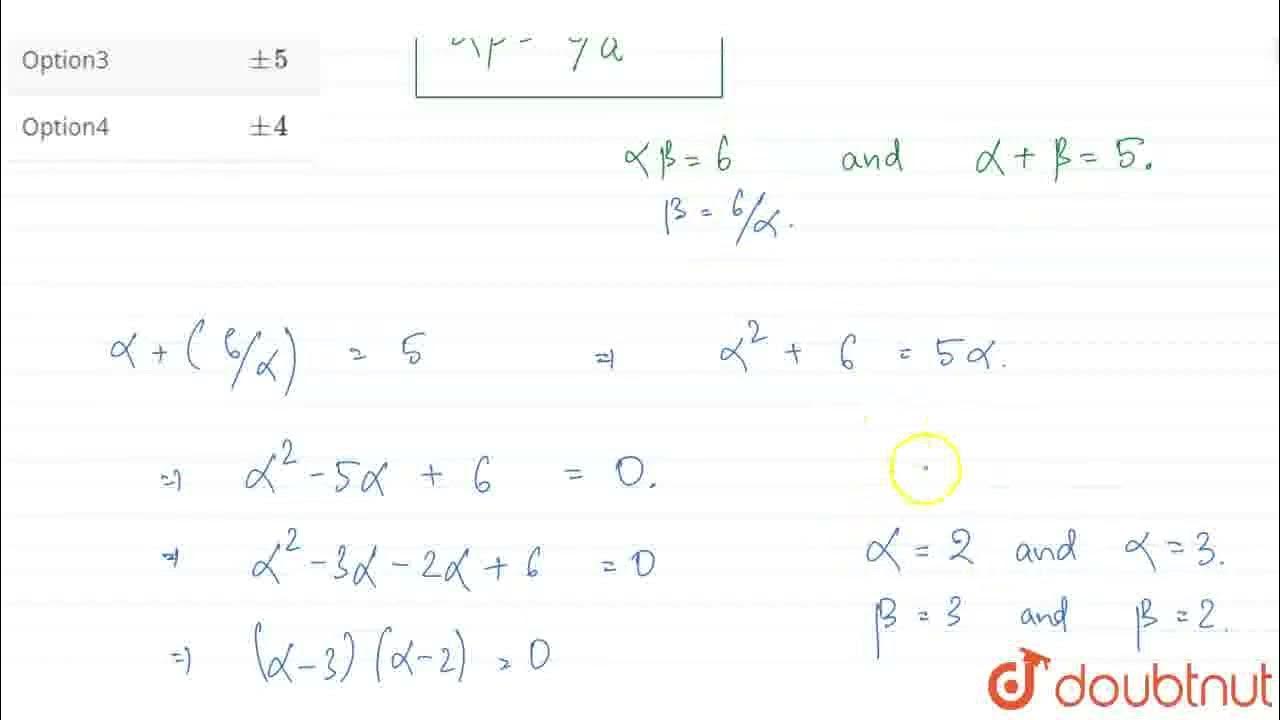 Option3 ±5
Option4 ±4
αβ = 6 and α + β = 5.
β = 6/α.
α + (6/α) = 5 ⇒ α² + 6 = 5α.
⇒ α² - 5α + 6 = 0.
⇒ α² - 3α - 2α + 6 = 0
α = 2 and α = 3.
β = 3 and β = 2.
⇒ (α - 3) (α - 2) = 0
doubtnut